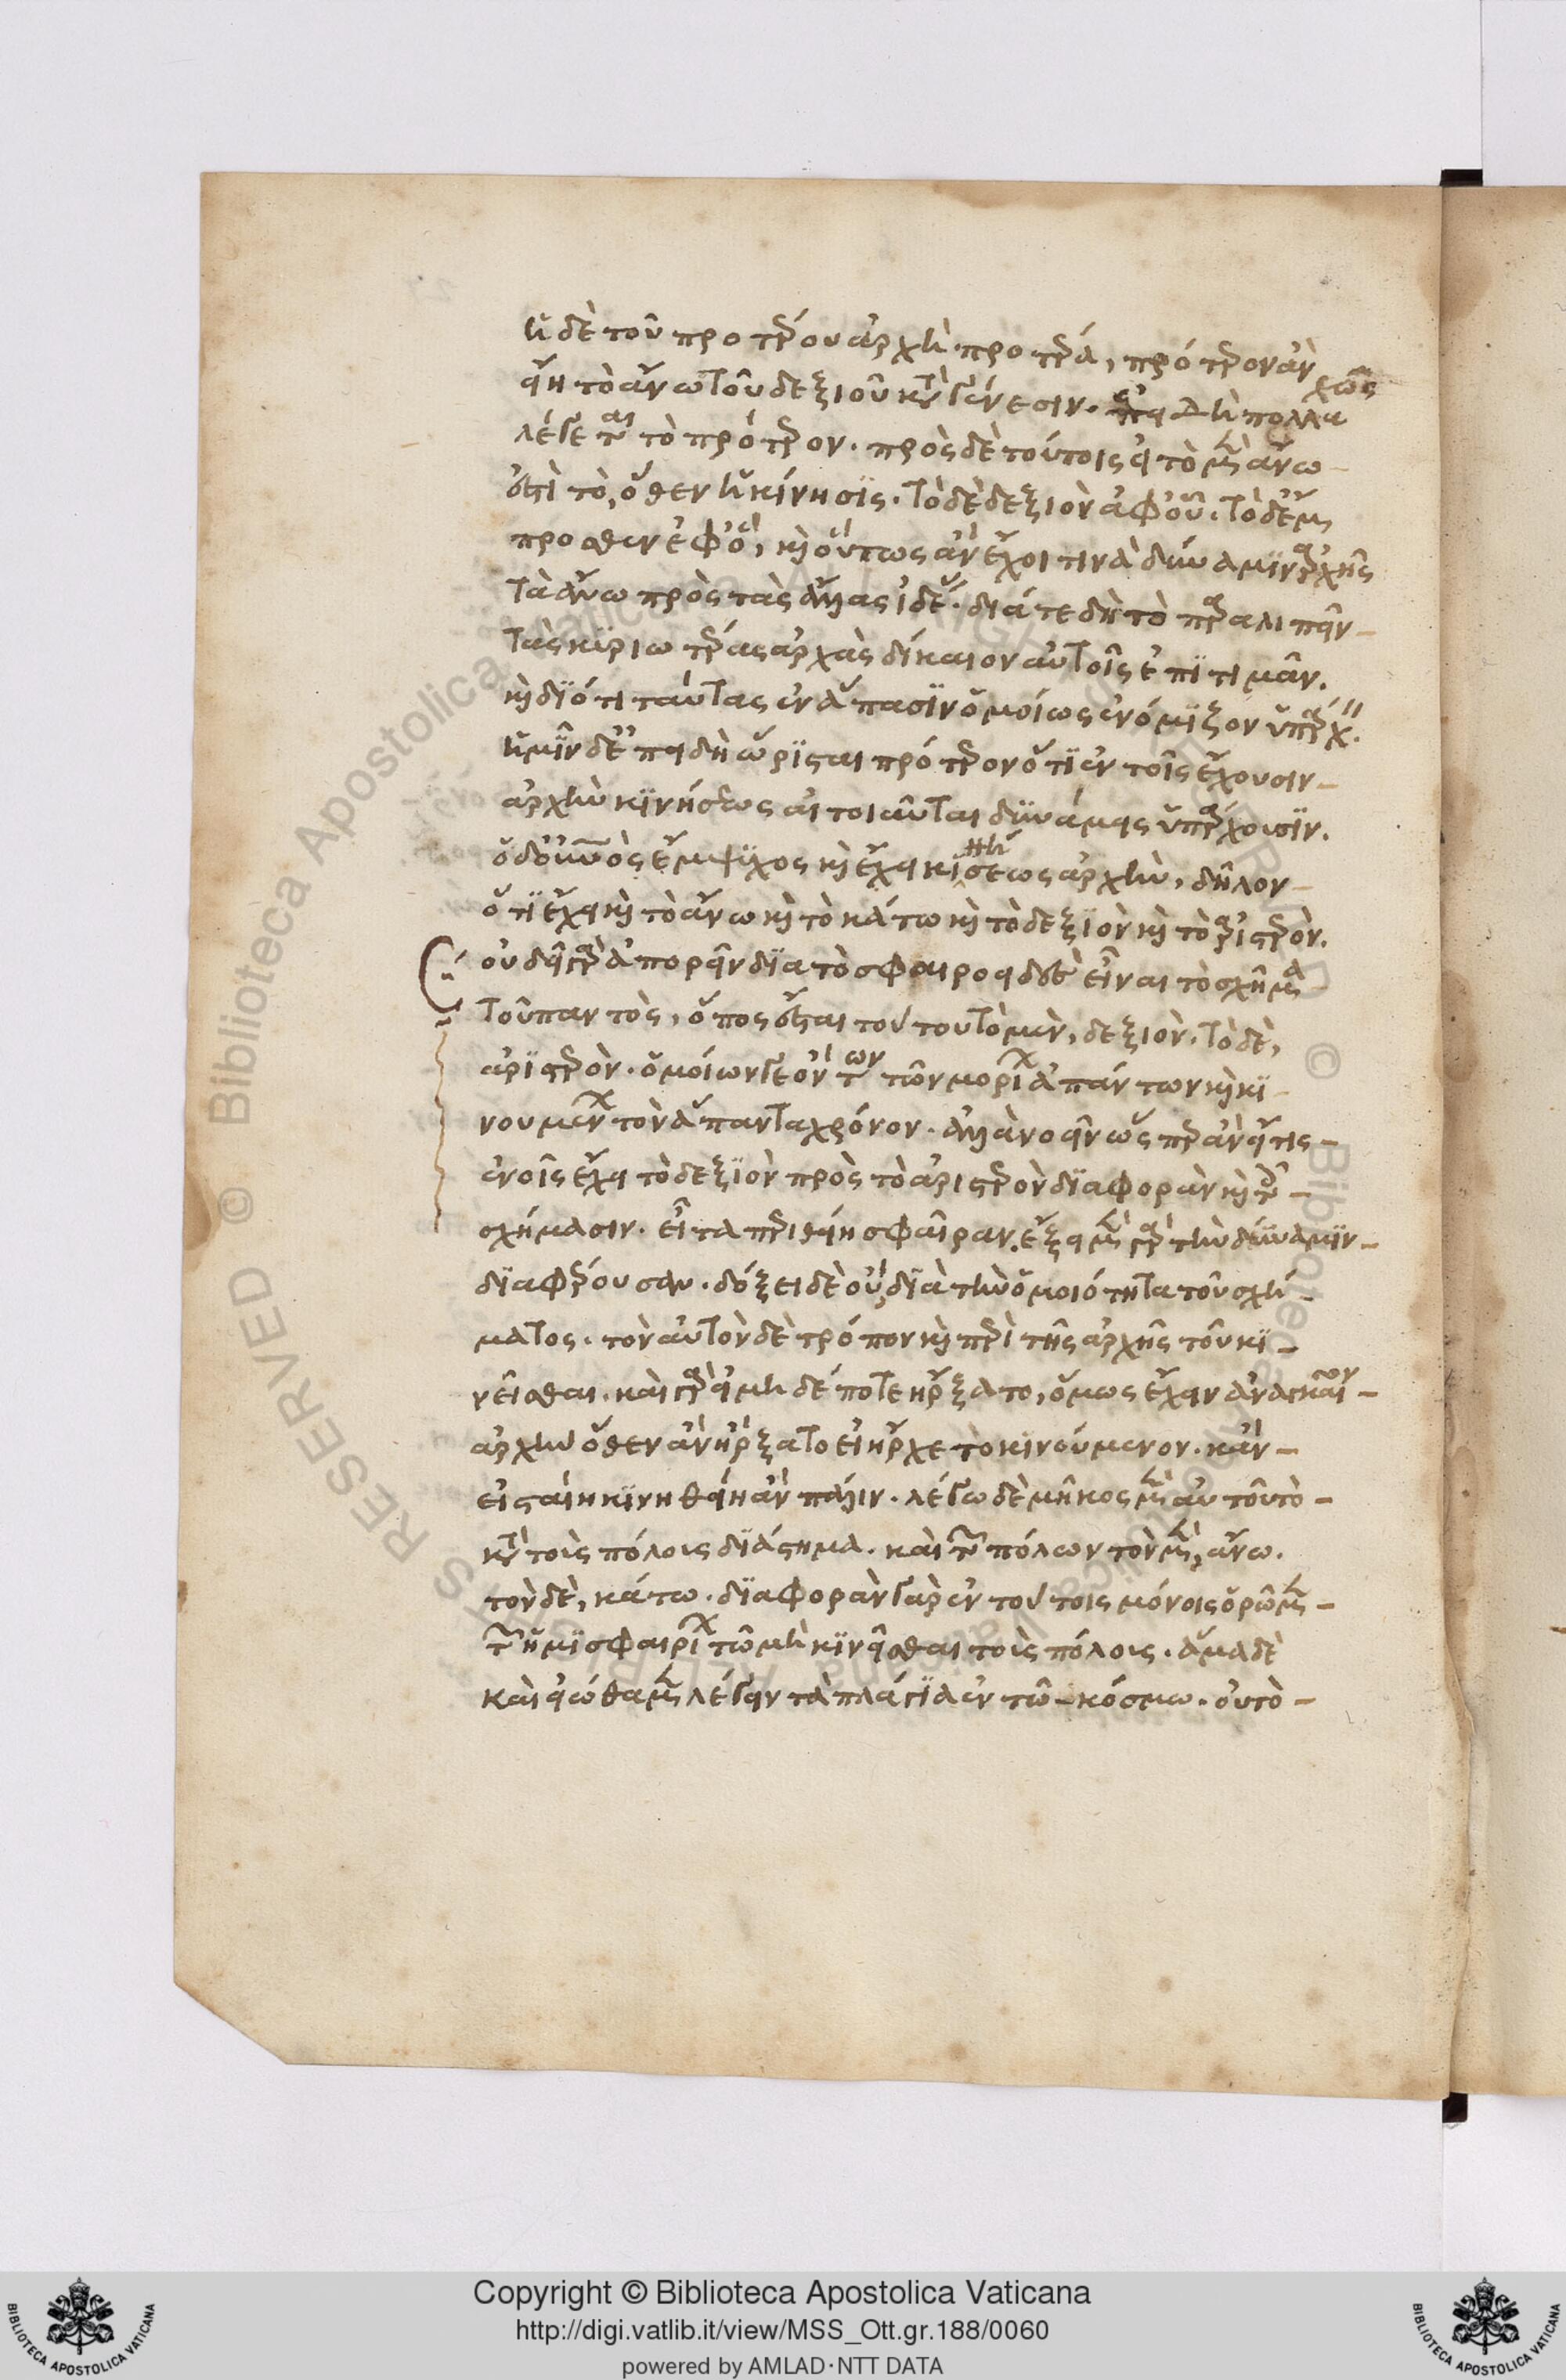 ἡ δὲ τοῦ προτέρου ἀρχὴ προτέρα, πρότερον ἂν
εἴη τὸ ἄνω τοῦ δεξιοῦ κατὰ γένεσιν. ἐπειδὴ πολλαχῶς
λέγεται τὸ πρότερον. πρὸς δὲ τούτοις εἰ τὸ μὲν ἄνω
ἐστὶ τὸ, ὅθεν ἡ κίνησις. τὸ δὲ δεξιὸν ἀφ' οὗ. τὸ δ' ἔμ
προσθεν ἐφ' ὃ, καὶ οὕτως ἂν ἔχοι τινὰ δύναμιν ἀρχῆς
τὰ ἄνω πρὸς τὰς ἄλλας ἰδέας. διά τε δὴ τὸ παραλιπεῖν
τὰς κυριωτέρας ἀρχὰς δίκαιον αὐτοῖς ἐπιτιμᾶν.
καὶ διότι ταύτας ἐν ἅπασιν ὁμοίως ἐνόμιζον ὑπάρχειν.
ἡμῖν δ' ἐπειδὴ ὥρισται πρότερον ὅτι ἐν τοῖς ἔχουσιν
ἀρχὴν κινήσεως αἱ τοιαῦται δυνάμεις ὑπάρχουσιν.
ὁ δ' οὐρανὸς ἔμψυχος καὶ ἔχει κινήσεως ἀρχὴν, δῆλον
ὅτι ἔχει καὶ τὸ ἄνω καὶ τὸ κάτω καὶ τὸ δεξιὸν καὶ τὸ ἀριστερὸν.
οὐ δεῖ γὰρ ἀπορεῖν διὰ τὸ σφαιροειδὲς εἶναι τὸ σχῆμα
τοῦ παντὸς, ὅπως ἔσται τούτου τὸ μὲν, δεξιὸν. τὸ δὲ,
ἀριστερὸν. ὁμοίων γε ὄντων τῶν μορίων ἁπάντων καὶ κι
νουμένων τὸν ἅπαντα χρόνον. ἀλλὰ νοεῖν ὥσπερ ἂν εἴ τις
ἐν οἷς ἔχει τὸ δεξιὸν πρὸς τὸ ἀριστερὸν διαφορὰν καὶ τοῖς
σχήμασιν. εἶτα περιθείη σφαῖραν. ἕξει μὲν γὰρ τὴν δύναμιν
διαφέρουσαν. δόξει δὲ οὒ, διὰ τὴν ὁμοιότητα τοῦ σχή
ματος. τὸν αὐτὸν δὲ τρόπον καὶ περὶ τῆς ἀρχῆς τοῦ κι
νεῖσθαι. καὶ γὰρ εἰ μηδέποτε ἤρξατο, ὅμως ἔχειν ἀναγκαῖον
ἀρχὴν ὅθεν ἂν ἤρξατο εἰ ἤρχετο κινούμενον. κἂν
εἰ σταίη κινηθείη ἂν πάλιν. λέγω δὲ μῆκος μὲν αὐτοῦ τὸ
κατὰ τοὺς πόλους διάστημα. καὶ τῶν πόλων τὸν μὲν, ἄνω.
τὸν δὲ, κάτω. διαφορὰν γὰρ ἐν τούτοις μόνοις ὁρῶμεν
τῶν ἡμισφαιρίων τῶ μὴ κινεῖσθαι τοὺς πόλους. ἅμα δὲ
καὶ εἰώθαμεν λέγειν τὰ πλάγια ἐν τῶ κόσμω. οὐ τὸ
Copyright © Biblioteca Apostolica Vaticana
http://digi.vatlib.it/view/MSS_Ott.gr.188/0060
powered by AMLAD·NTT DATA